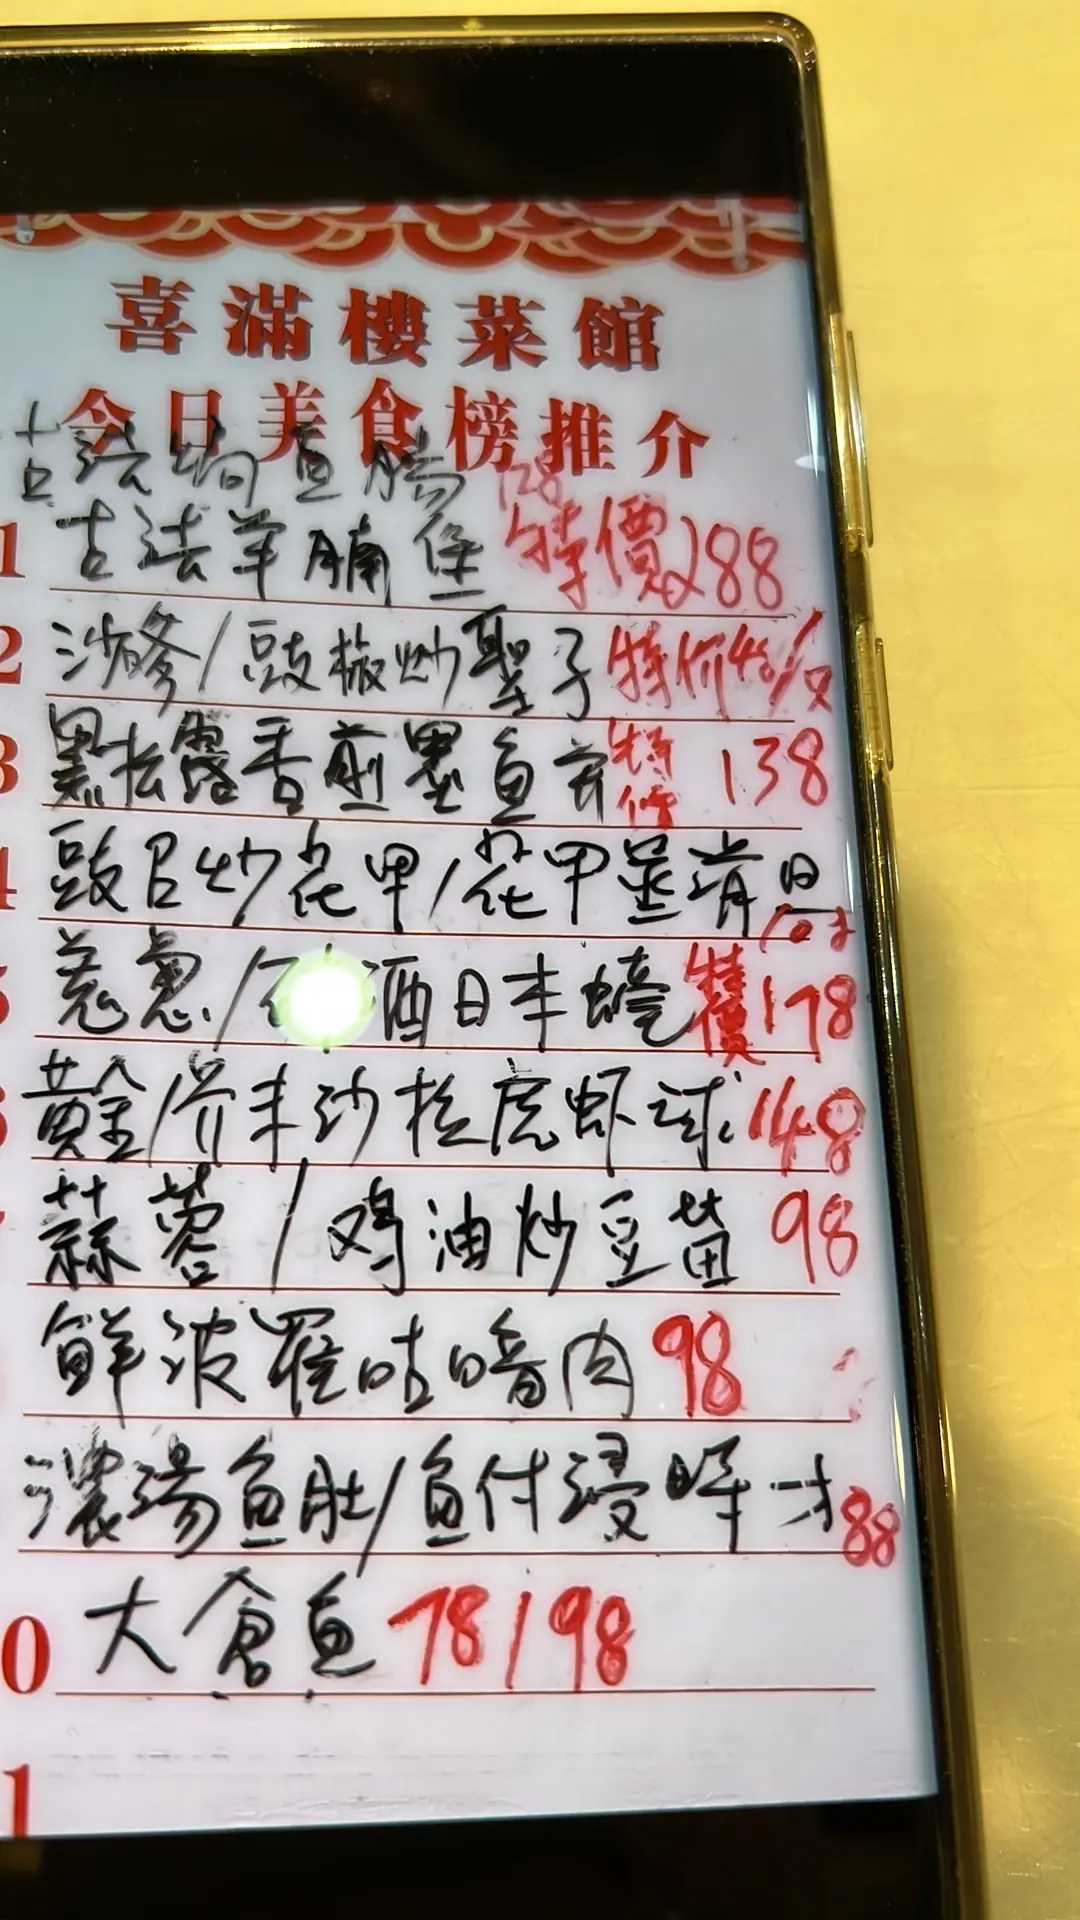 喜滿樓菜館
今日美食榜推介
古法焗魚腸 128
1 古法羊腩煲 特價288
2 沙爹/豉椒炒聖子 特价40/只
3 黑松露香煎墨魚 特價 138
4 豉炒花甲/花甲蒸 108
5 姜葱/酒日本蠔 特價178
6 黃金/芥末沙拉虎虾球 148
7 蒜蓉/鸡油炒豆苗 98
鮮波羅咕嚕肉 98
濃湯魚肚/魚付浸時才 88
0 大倉魚 78/98
1